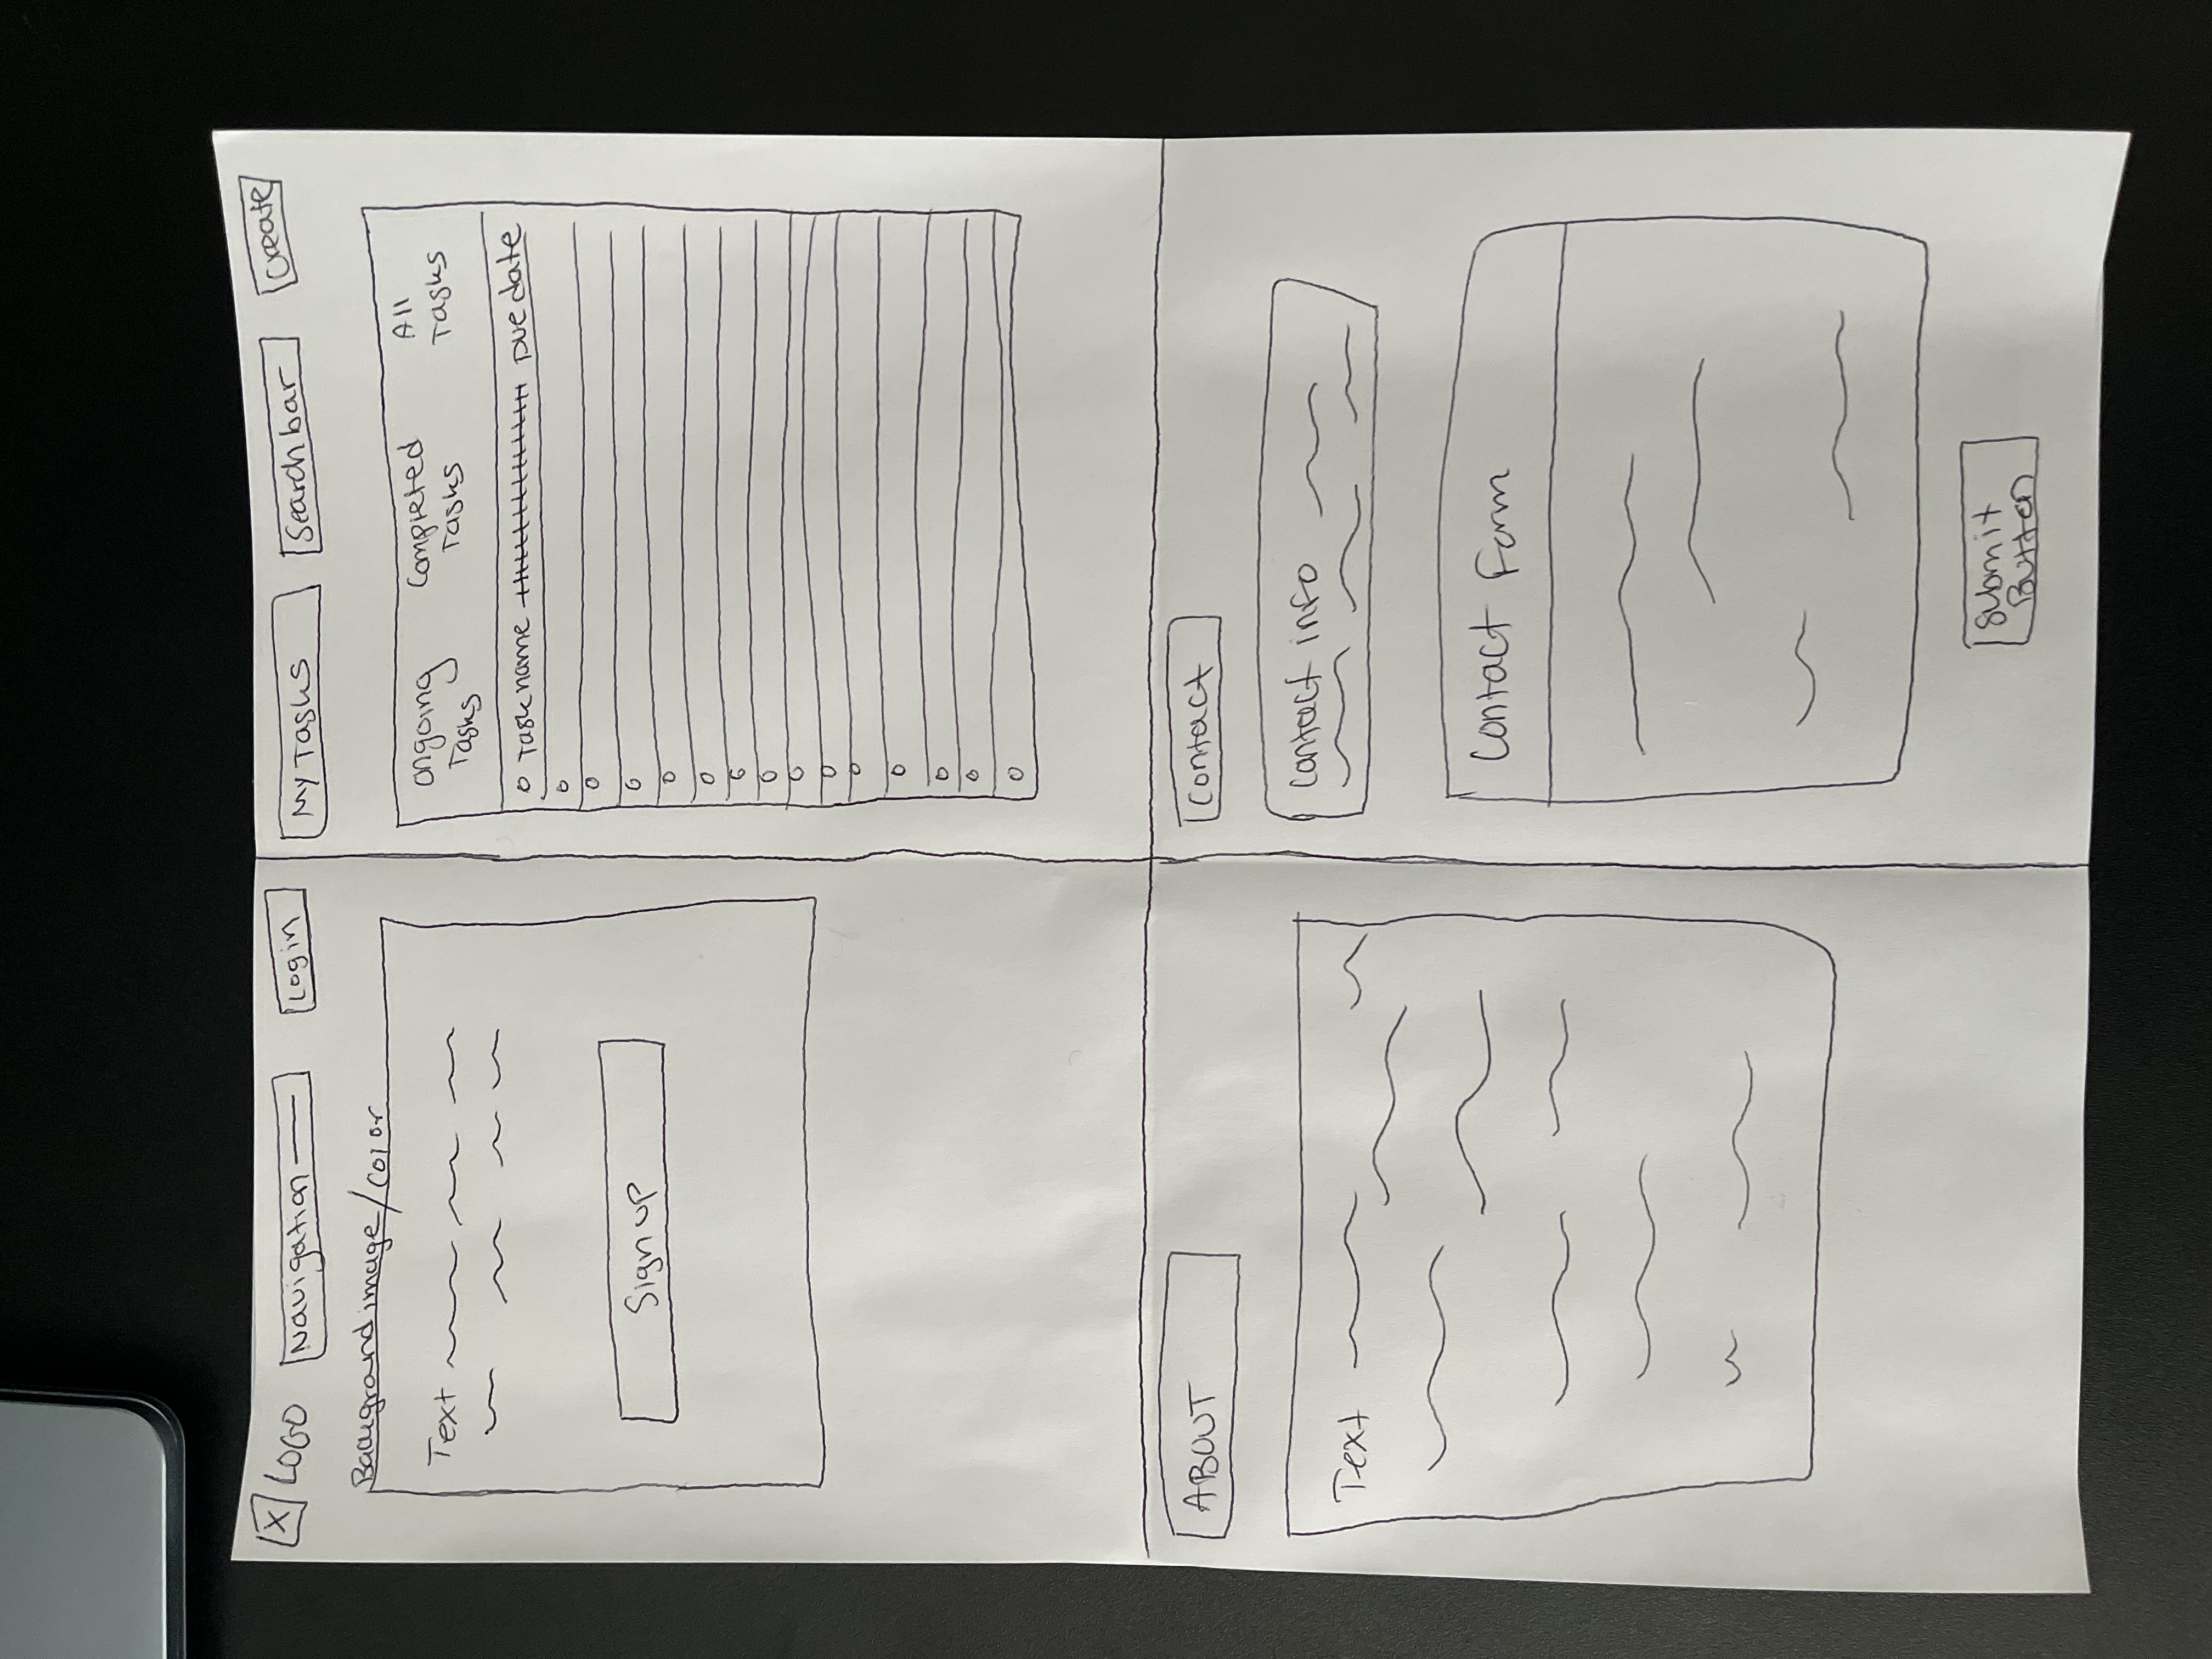 X LOGO Navigation Login
Background image/color
Text
Sign up
My Tasks Search bar Create
Ongoing Tasks
Completed Tasks
All Tasks
Task name Due date
ABOUT
Text
Contact
Contact info
Contact Form
Submit
Button